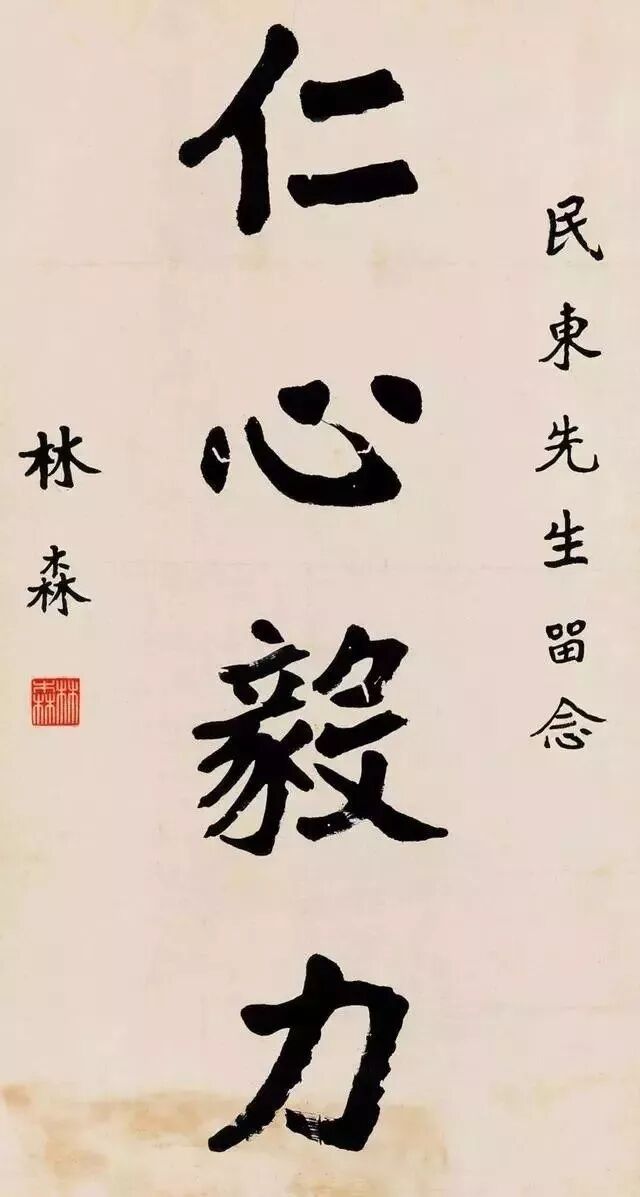 民東先生留念
仁心毅力
林森
林森